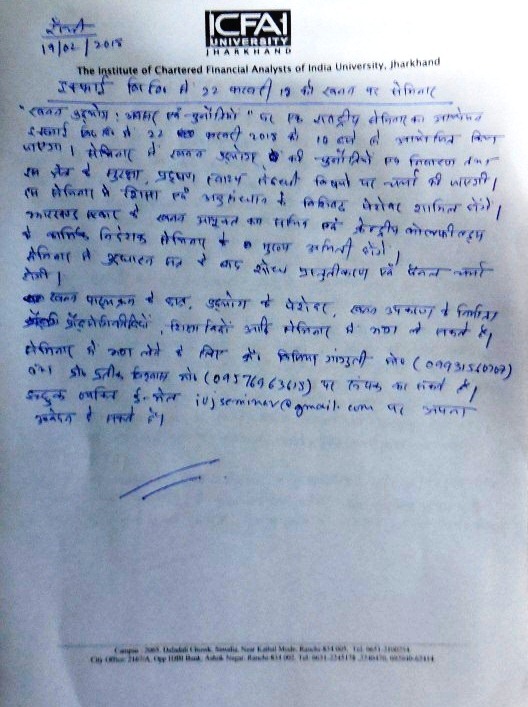 राँची
19/02/2018
ICFAI
UNIVERSITY
JHARKHAND
The Institute of Chartered Financial Analysts of India University, Jharkhand
इक्फाई वि॰वि॰ में 22 फरवरी को खनन पर सेमिनार
"खनन उद्योग : अवसर एवं चुनौतियाँ" पर एक राष्ट्रीय सेमिनार का आयोजन
इक्फाई वि॰वि॰ में 22 फरवरी 2018 को 10 बजे से आयोजित किया
जाएगा। सेमिनार में खनन उद्योग की चुनौतियों एवं निवारण तथा
इस क्षेत्र के सुरक्षा, प्रदूषण, स्वास्थ्य संबंधी विषयों पर चर्चा की जाएगी।
इस सेमिनार में शिक्षा एवं अनुसंधान के विशिष्ट पेशेवर शामिल होंगे।
झारखण्ड सरकार के खनन आयुक्त एवं केन्द्रीय
के कार्मिक निदेशक सेमिनार के मुख्य अतिथि होंगे।
सेमिनार में उद्घाटन सत्र के बाद शोध प्रस्तुतीकरण एवं पैनल चर्चा
होगी।
खनन पाठ्यक्रम के छात्र, उद्योग के पेशेवर, खनन उपकरण के निर्माता
शिक्षाविदों आदि सेमिनार में भाग ले सकते हैं।
सेमिनार में भाग लेने के लिए गांगुली मो॰ (09931560707)
एवं मो॰ (09576963615) पर संपर्क कर सकते हैं।
इच्छुक व्यक्ति ई-मेल iujseminar@gmail.com पर अपना
आवेदन दे सकते हैं।
Campus : 2005, Daladali Chowk, Simalia, Near Kathal Mode, Ranchi-834 005, Tel: 0651-2100254
City Office: 2167/A, Opp HDFC Bank, Ashok Nagar, Ranchi-834 002, Tel: 0651-2245178